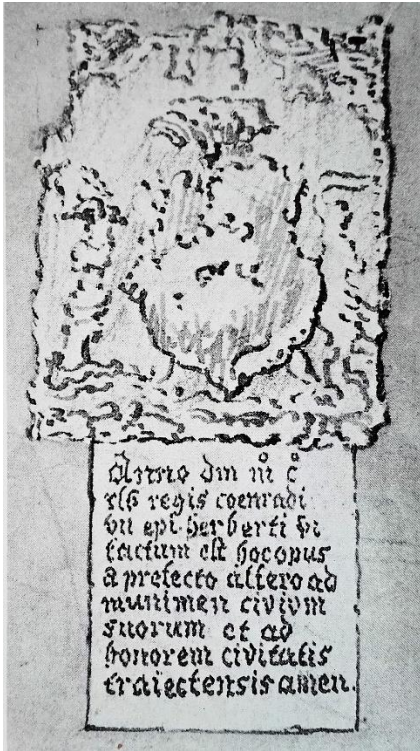 Anno dm m̊ c̊
xlv regis coenradi
vii epi herberti vi
factum est hoc opus
a prefecto altero ad
munimen civium
suorum et ad
honorem civitatis
traiectensis amen.